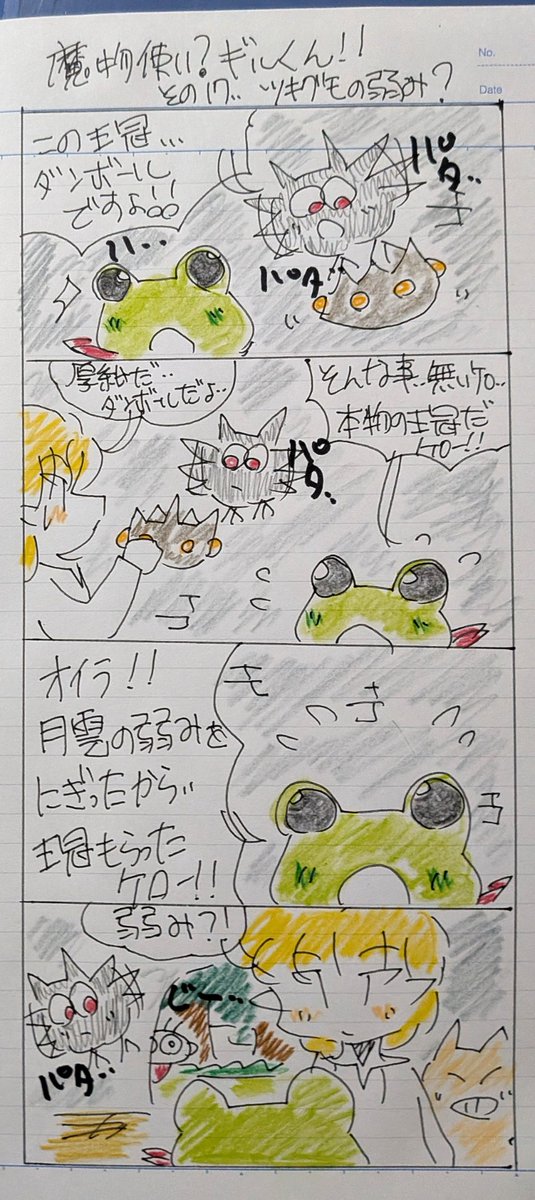 魔物使い?ギルくん!!
その17.. ツキグモの弱み?
No.
Date
この王冠...
ダンボール
ですよ!!
パタ..
ハ...
パタ..
そんな事..無いケロ..
本物の王冠だ
ケロー!!
厚紙だ...
ダンボールだよ..
パタ..
オイラ!!
月雲の弱みを
にぎったから..
王冠もらった
ケロー!!
弱み?!
じー...
パタ..